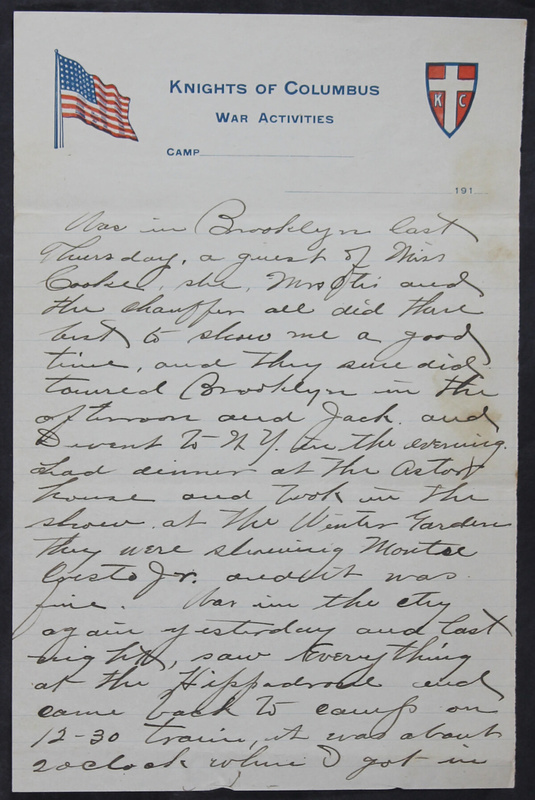 KNIGHTS OF COLUMBUS
WAR ACTIVITIES
K C
CAMP
191
Was in Brooklyn last
Thursday, a guest of Miss
Cooke, she, Mrs Otis and
the chauffer all did there
best to show me a good
time, and they sure did
toured Brooklyn in the
afternoon and Jack and
I went to N Y. in the evening.
had dinner at the Astor
house and took in the
show at the Winter Garden
They were showing Monte
Cristo Jr. and it was
fine. Was in the cty
again yesterday and last
night, saw Everything
at the Hippodrome and
came back to camp on
12-30 train, it was about
2 oclock when I got in